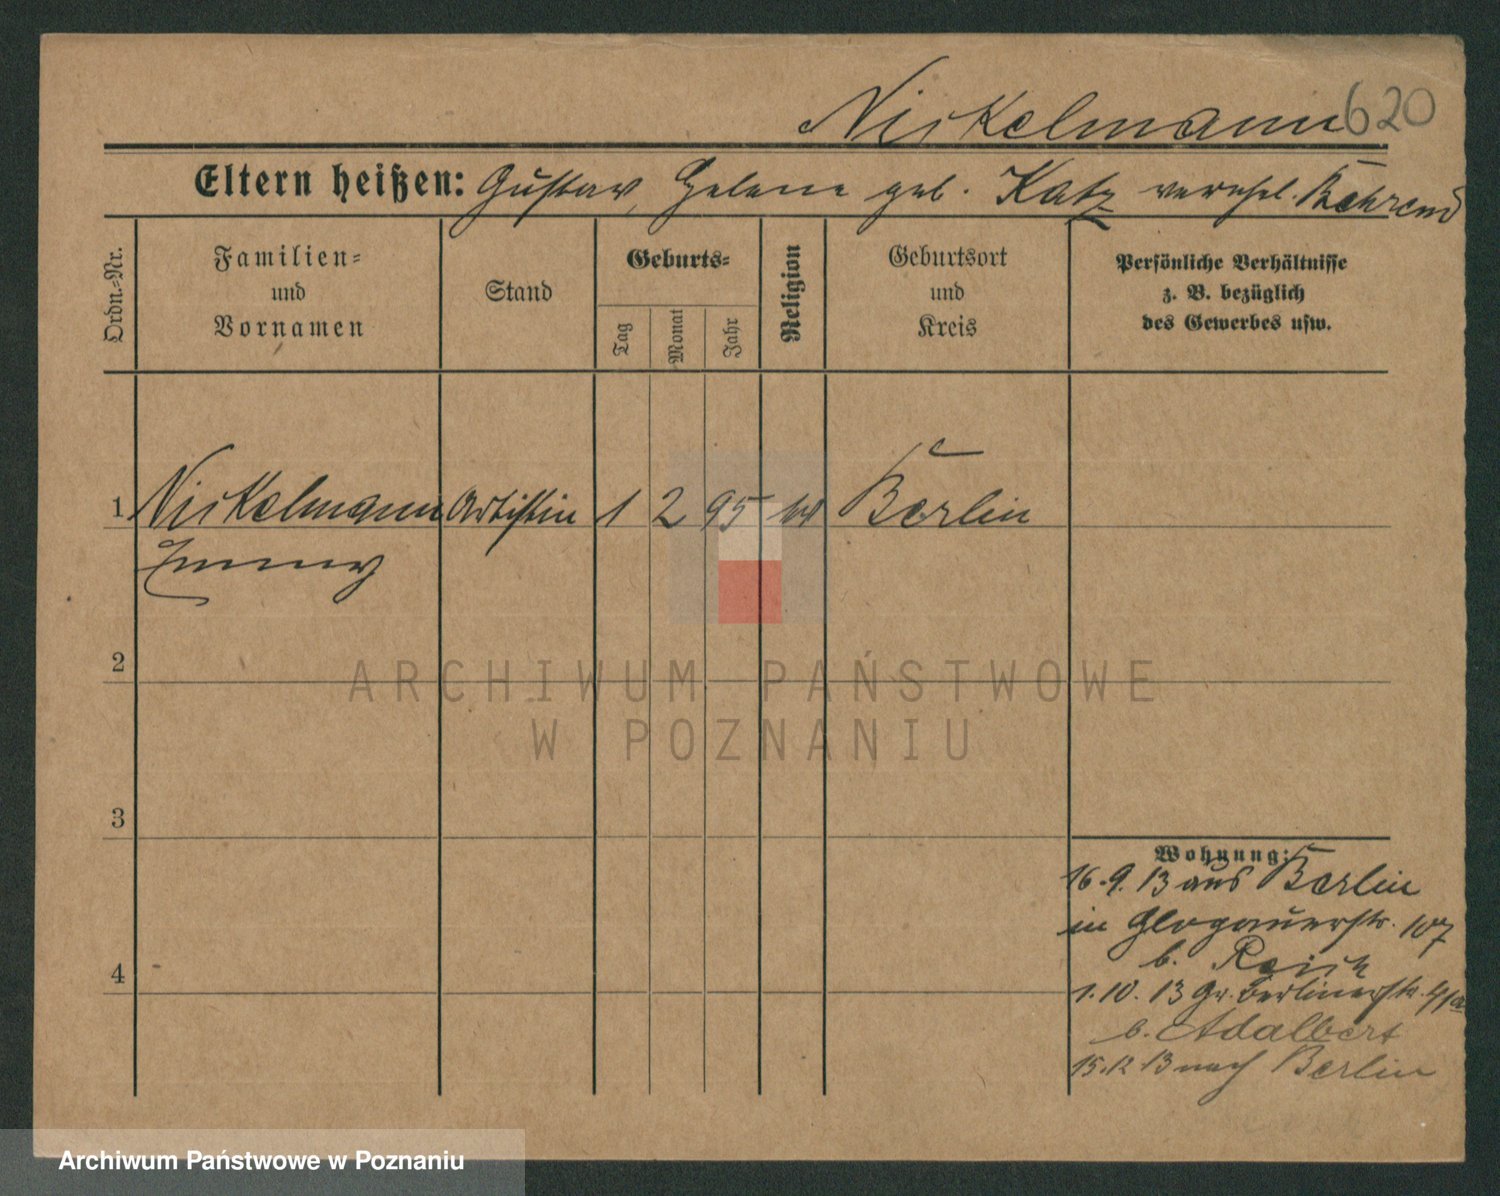 Nickelmann 620
Eltern heißen: Gustav, Helene geb. Katz verehel. Behrend
Ordn.-Nr.
Familien-
und
Vornamen
Stand
Geburts-
Tag
Monat
Jahr
Religion
Geburtsort
und
Kreis
Persönliche Verhältnisse
z. B. bezüglich
des Gewerbes usw.
1 Nickelmann Artistin 1 2 95 Berlin
Emmy
2
3
4
Wohnung:
16.9.13 aus Berlin
in Glogauerstr. 107
b. Reich
1.10.13 Gr. Berlinerstr. 41a
b. Adalbert
15.12 13 nach Berlin
ARCHIWUM PAŃSTWOWE
W POZNANIU
Archiwum Państwowe w Poznaniu